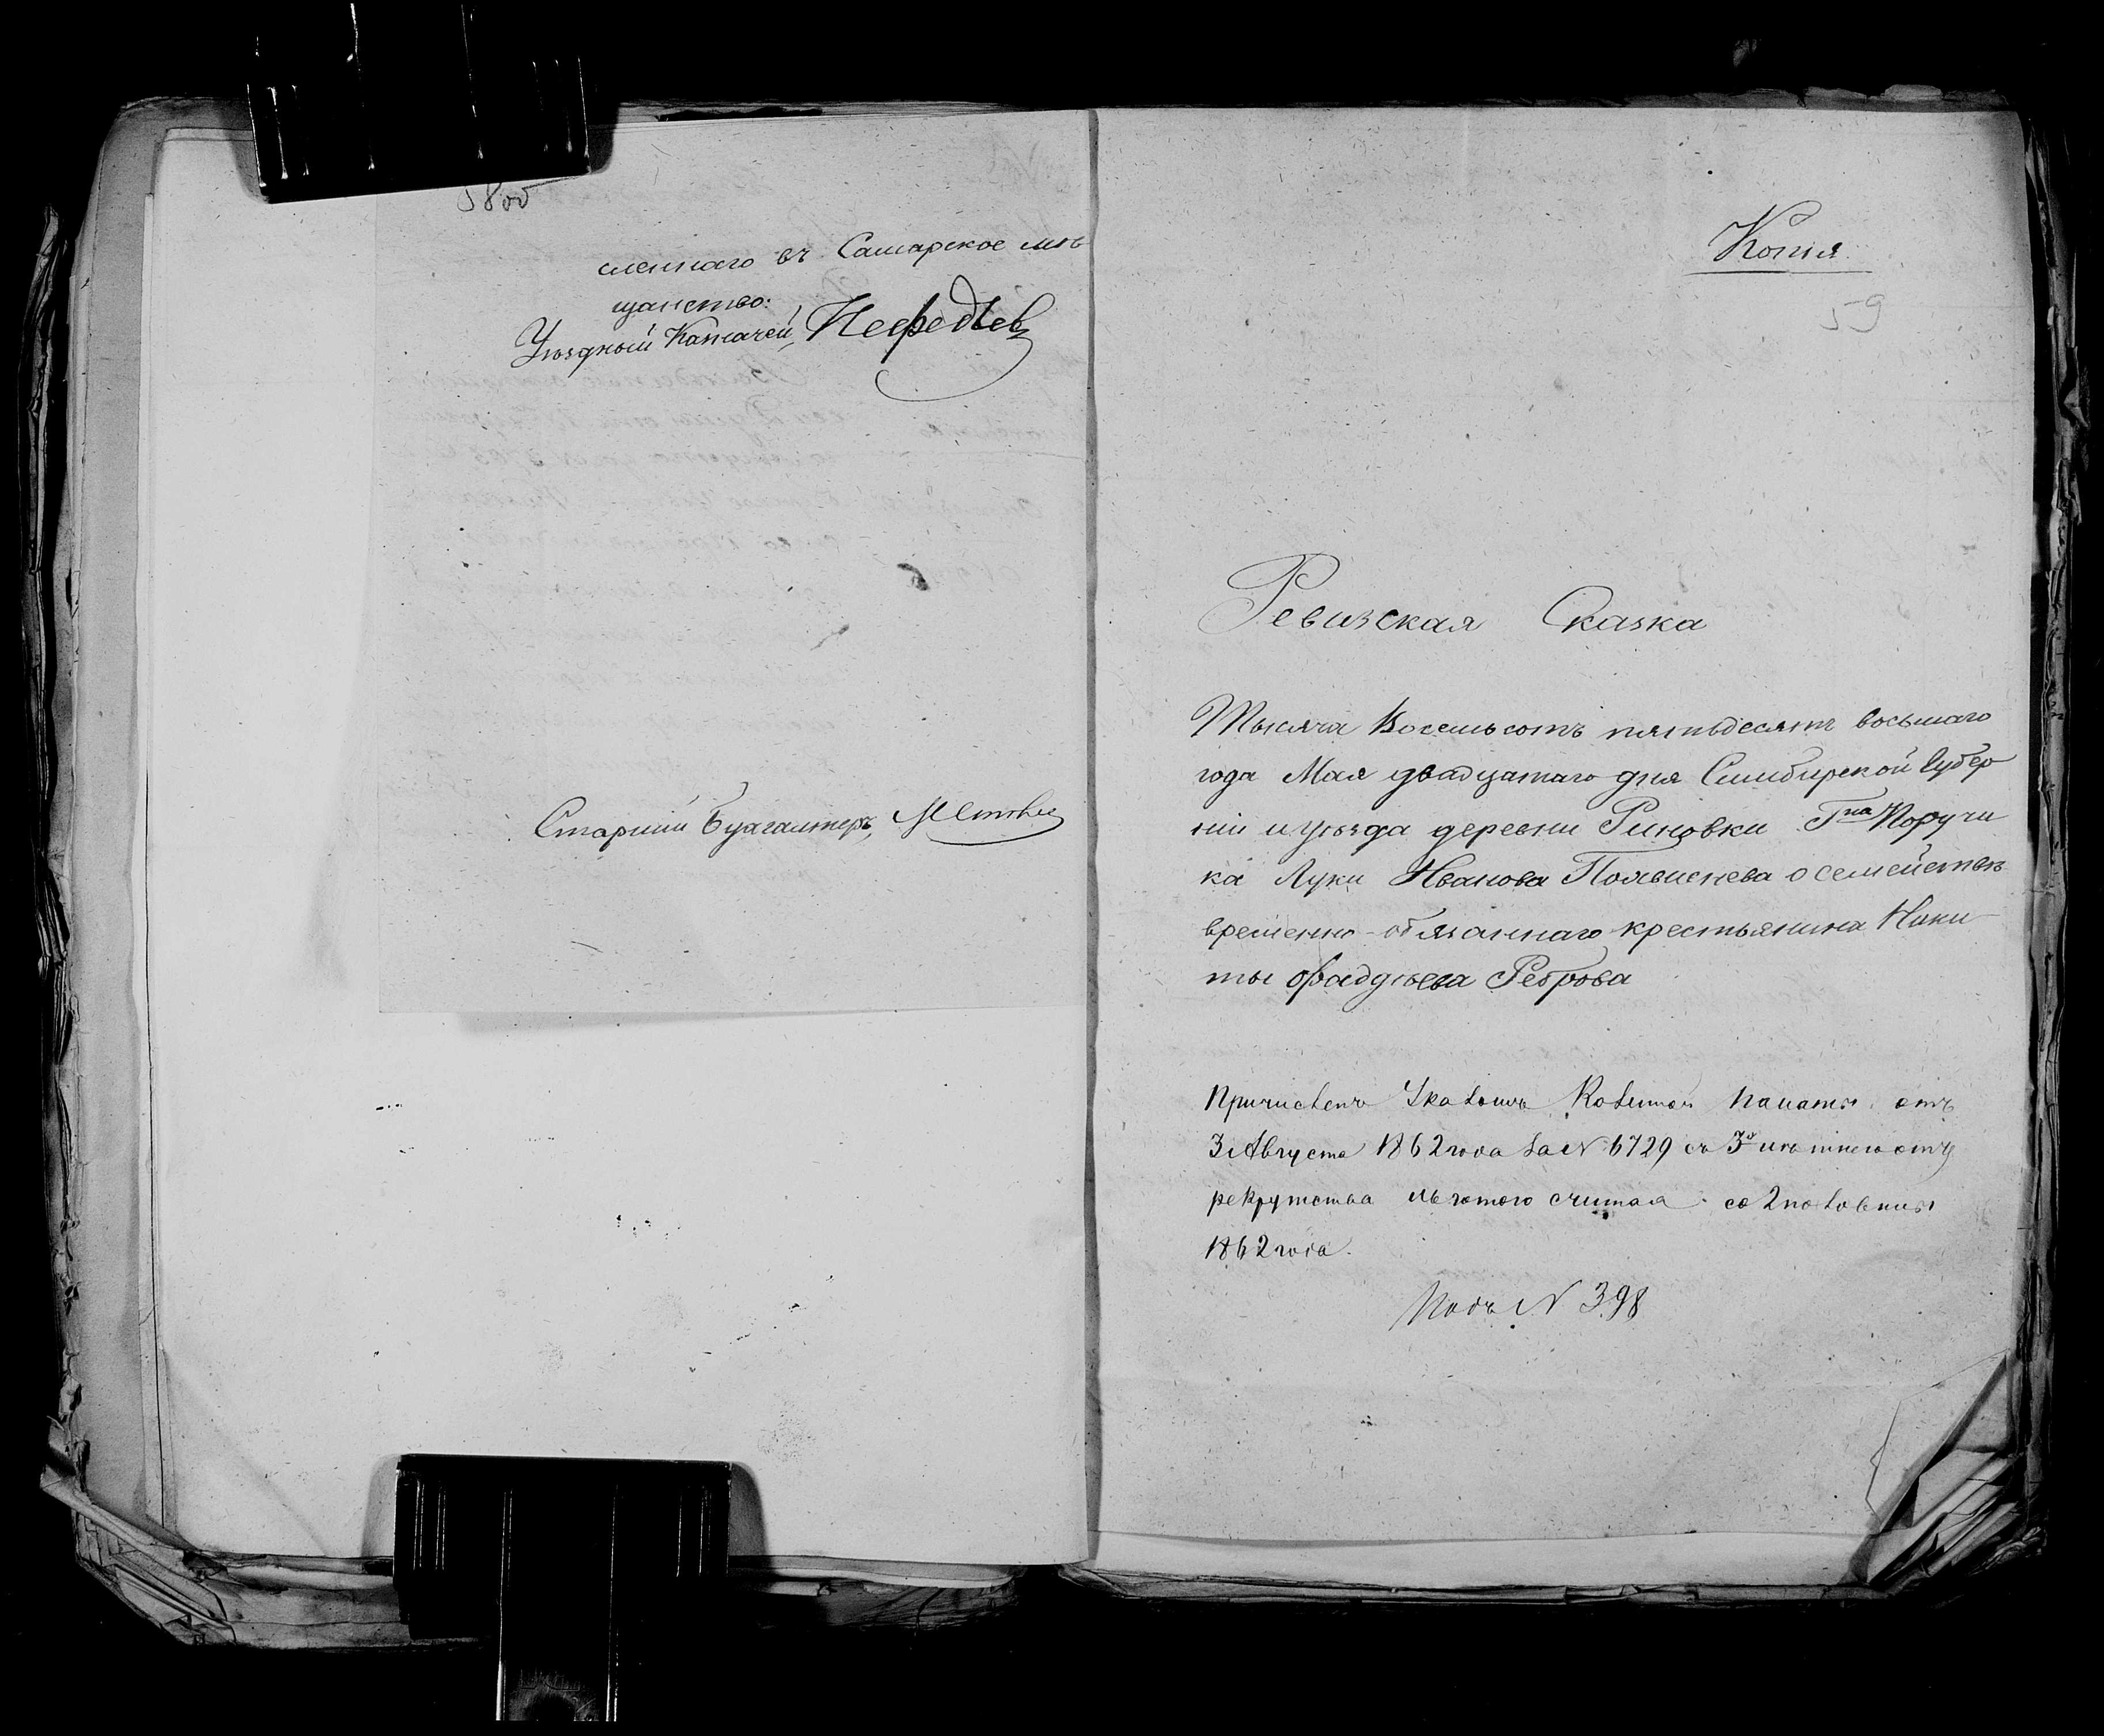 58об
сленнаго въ Самарское мѣ
щанство:
Уѣздный Казначей, Нефедьев
Старший Бухгалтеръ,
Копія
59
Ревизская Сказка
Тысяча Восемьсотъ пятьдесятъ восьмаго
года Мая двадцатаго дня Симбирской Губер
ніи и уѣзда деревни Риновки Гна Поручи
ка Луки Иванова Полвиснева о семействѣ
временно-обязаннаго крестьянина Ники
ты Фаддѣева Реброва
Причисленъ Указомъ Казенной палаты отъ
3 Августа 1862 года за N 6729 съ 3х лѣтнею отъ
рекрутства льготою считая со 2 половины
1862 года.
Подъ N 398